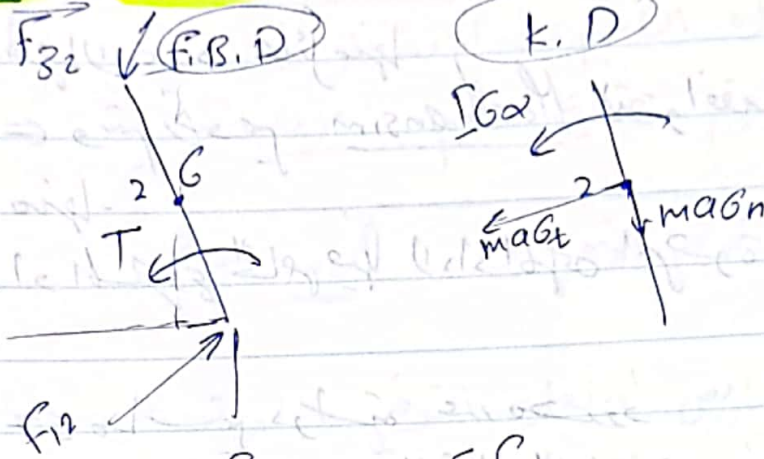 F32
F.B.D
K.D
IGα
2 G
T
2
maGt
maGn
F12